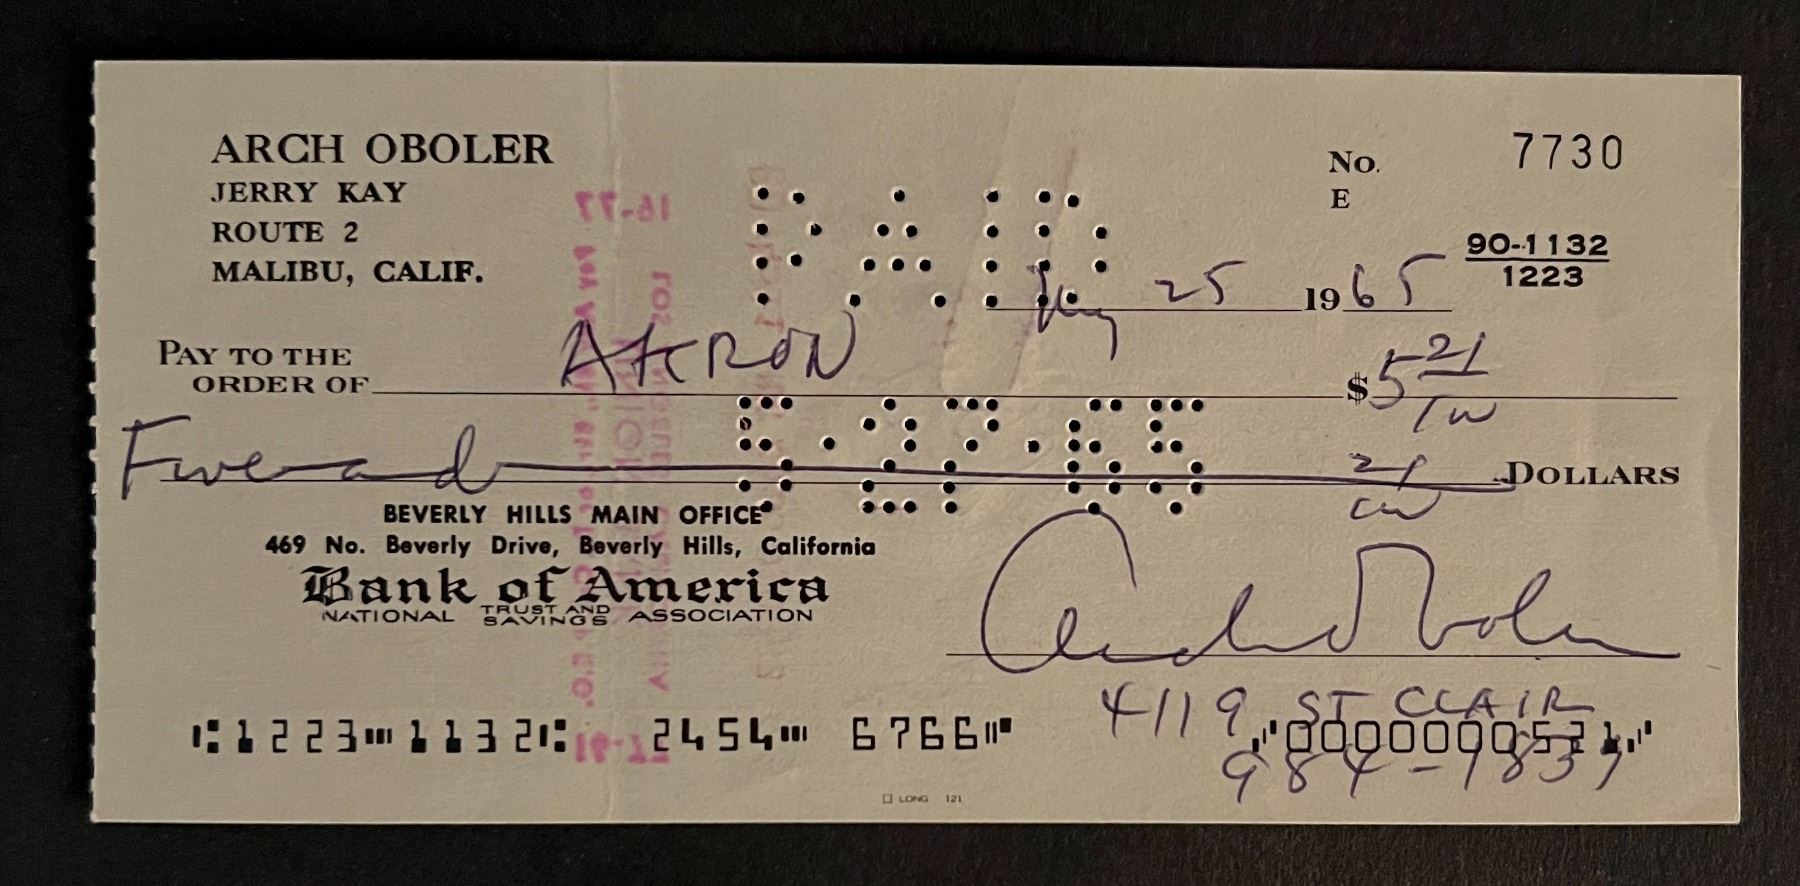 ARCH OBOLER
JERRY KAY
ROUTE 2
MALIBU, CALIF.
No. 7730
E
90-1132
1223
PAID
May 25 1965
PAY TO THE
ORDER OF AKRON $5 21/100
5·27·65
Five and 21/00 DOLLARS
BEVERLY HILLS MAIN OFFICE
469 No. Beverly Drive, Beverly Hills, California
Bank of America
NATIONAL TRUST AND SAVINGS ASSOCIATION
Arch Oboler
4119 ST CLAIR
⑆1223⑉1132⑆ 2454⑉ 6766⑈ ⑇0000000521⑇
984-1837
LONG 121
16-77